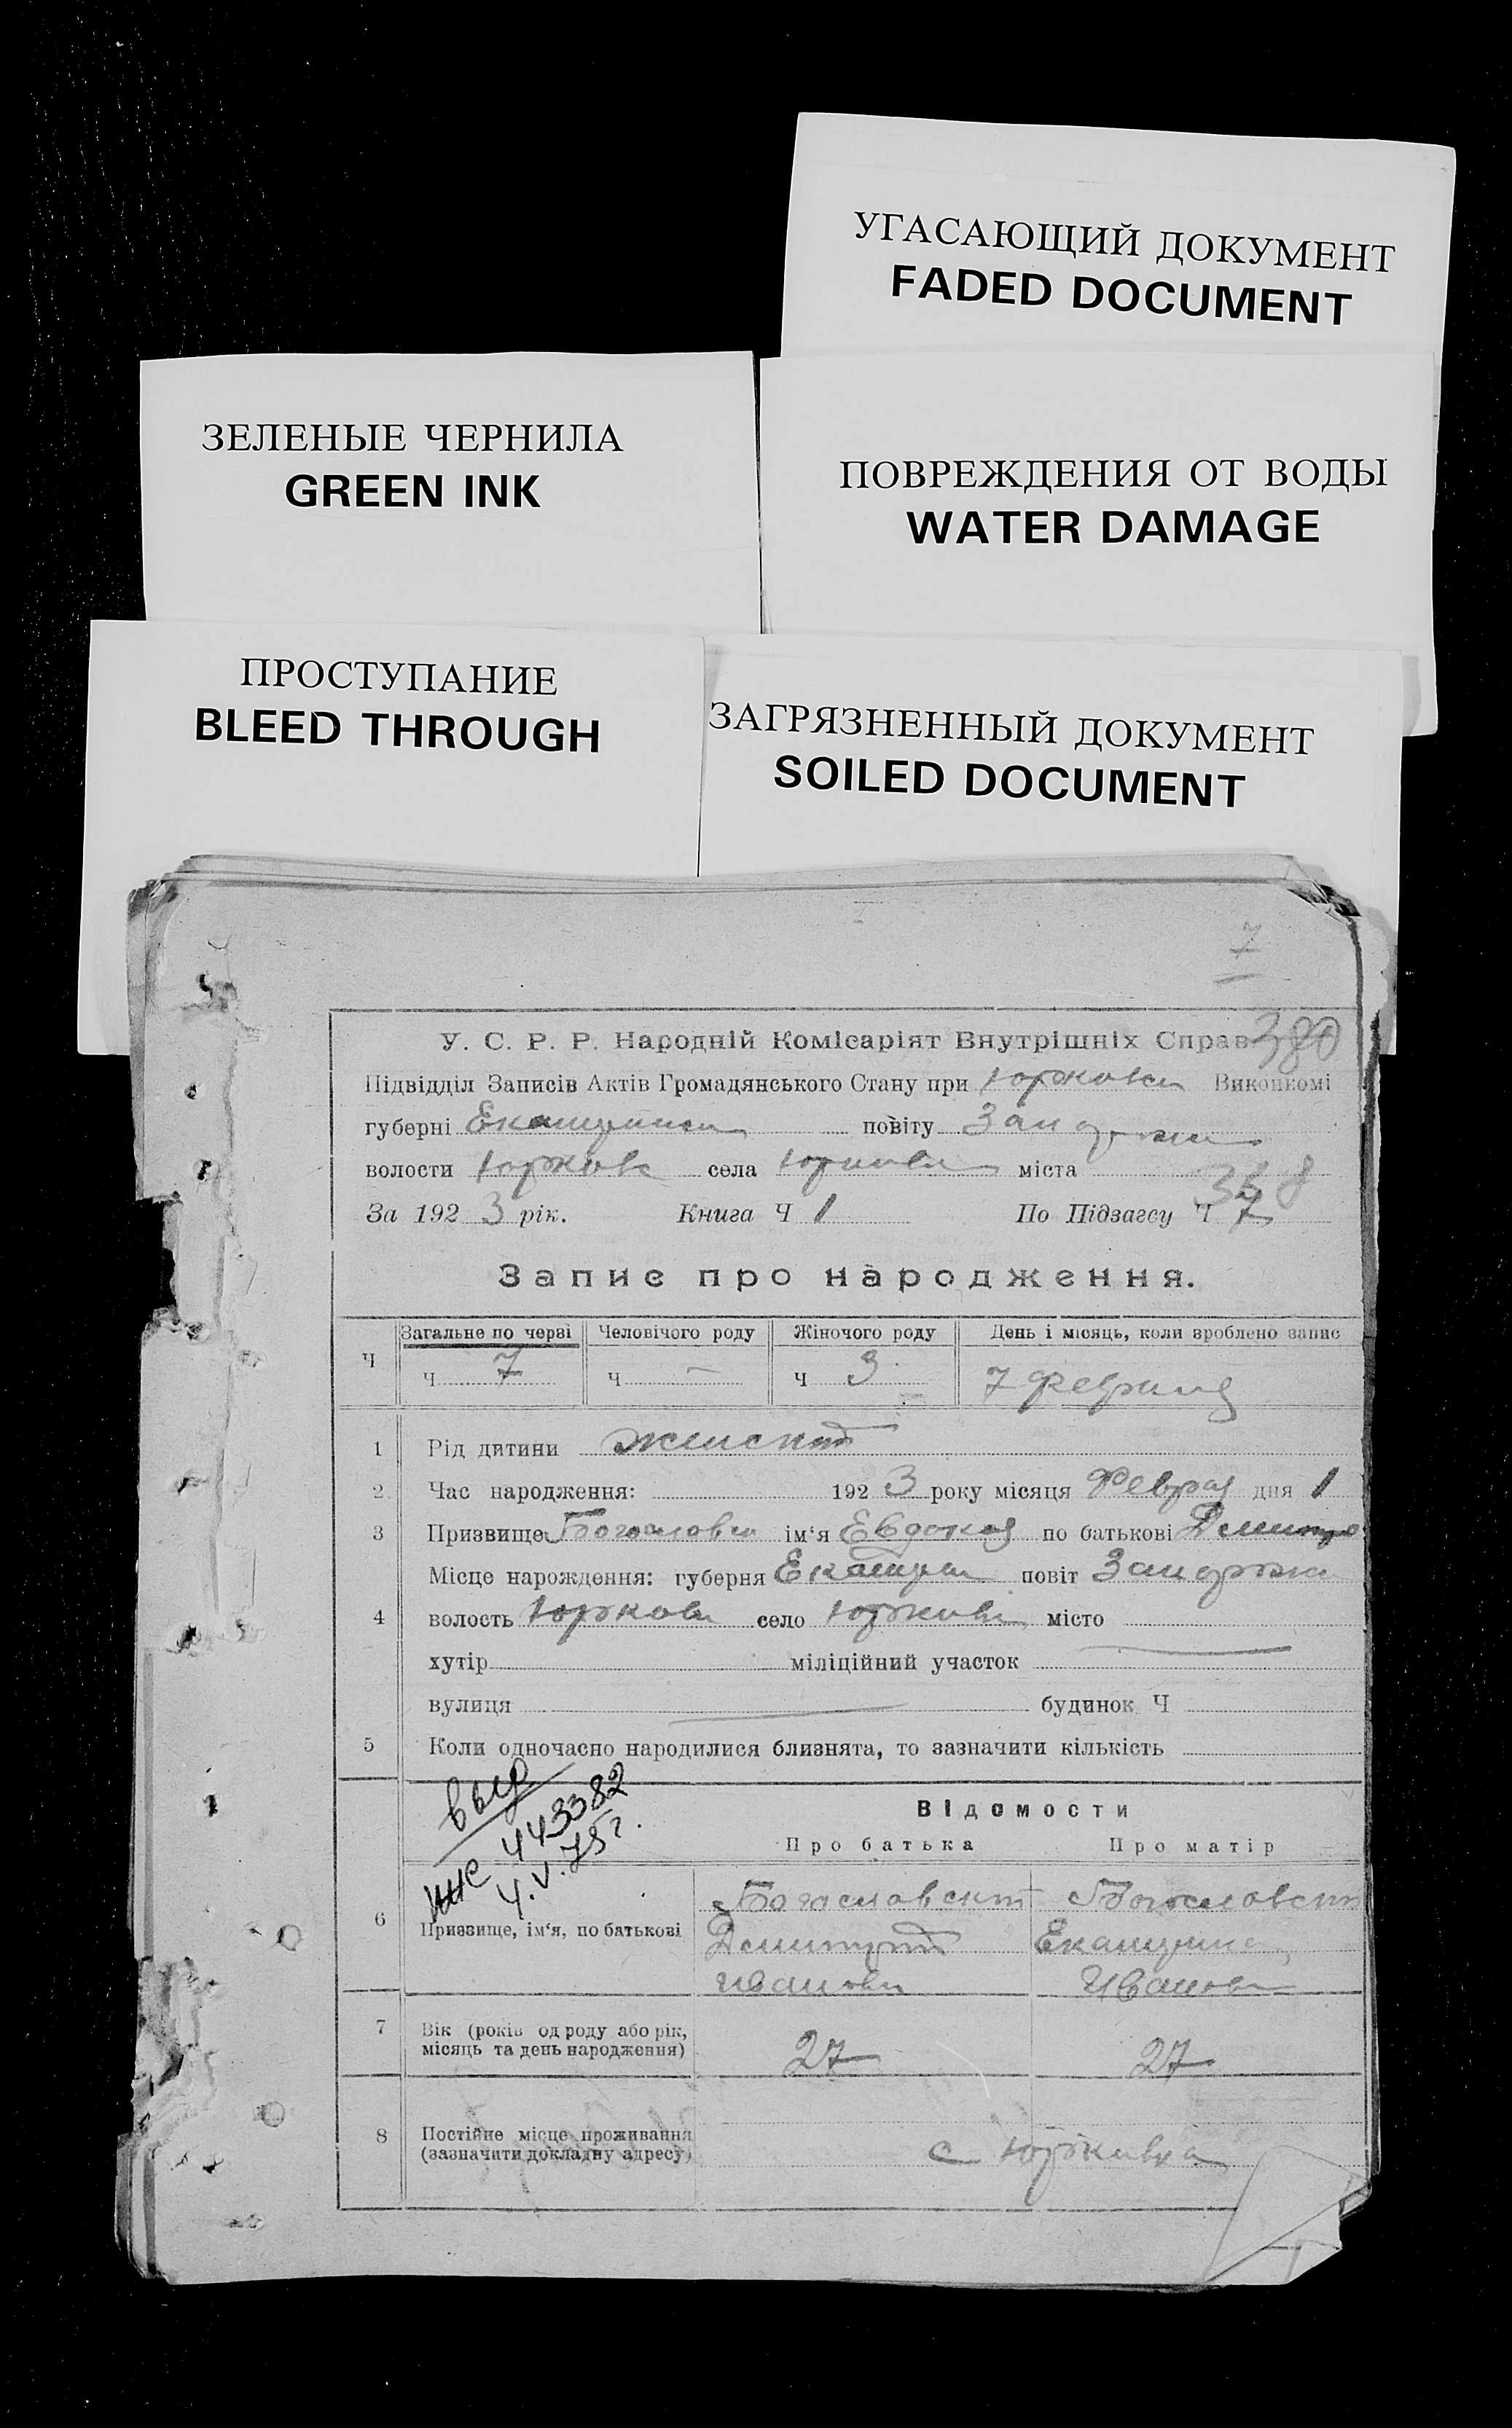 УГАСАЮЩИЙ ДОКУМЕНТ
FADED DOCUMENT
ЗЕЛЕНЫЕ ЧЕРНИЛА
GREEN INK
ПОВРЕЖДЕНИЯ ОТ ВОДЫ
WATER DAMAGE
ПРОСТУПАНИЕ
BLEED THROUGH
ЗАГРЯЗНЕННЫЙ ДОКУМЕНТ
SOILED DOCUMENT
7
У. С. Р. Р. Народній Комісаріят Внутрішніх Справ 380
Підвідділ Записів Актів Громадянського Стану при Виконкомі
губерні повіту
волости села міста
За 192 3 рік. Книга Ч 1 По Підзагсу Ч 7
Запис про народження.
Загальне по черзі Человічого роду Жіночого роду День і місяць, коли зроблено запис
Ч ч 7 ч — ч 3 7 февраля
1 Рід дитини женский
2 Час народження: 192 3 року місяця Феврал дня 1
3 Призвище ім‘я Евдокия по батькові Дмитро
Місце нарождення: губерня повіт
4 волость село місто
хутір міліційний участок
вулиця будинок Ч
5 Коли одночасно народилися близнята, то зазначити кількість
выр
443382
4.V.75г.
Відомости
Про батька Про матір
6 Призвище, ім‘я, по батькові Богословский
Дмитрий Екатерина
7 Вік (років од роду або рік, місяць та день народження) 27 27
8 Постійне місце проживання (зазначити докладну адресу) с Юрковка